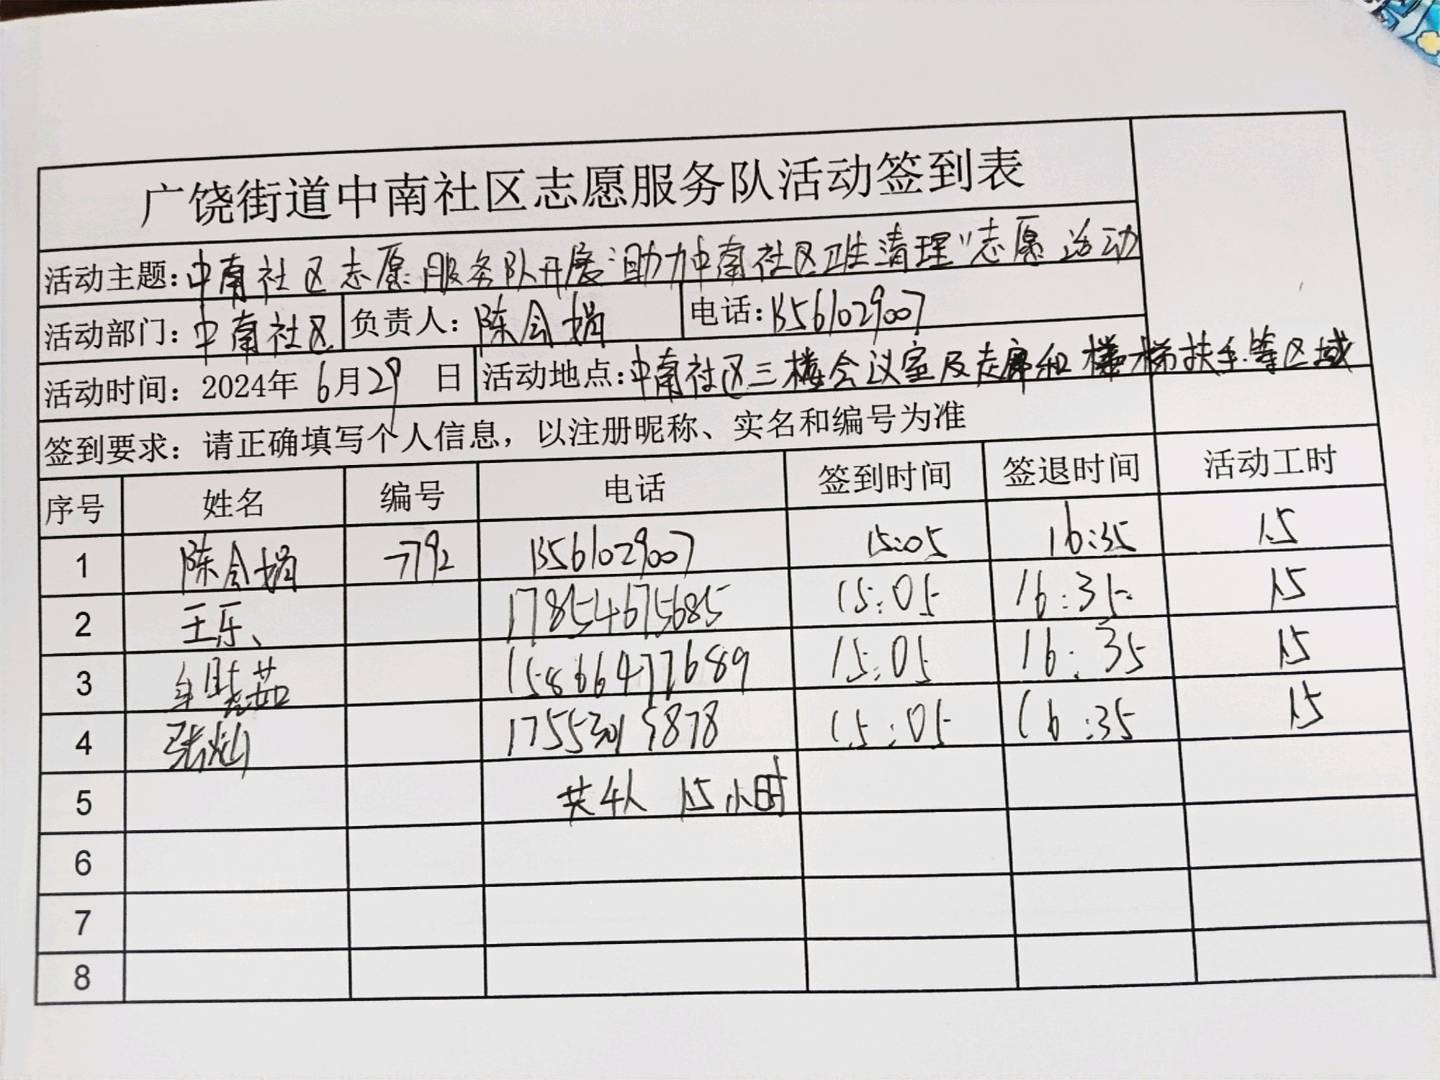 广饶街道中南社区志愿服务队活动签到表
活动主题:中南社区志愿服务队开展"助力中南社区卫生清理"志愿活动
活动部门:中南社区 负责人:陈会娟 电话:13561029007
活动时间:2024年 6月29 日 活动地点:中南社区三楼会议室及走廊和楼梯扶手等区域
签到要求:请正确填写个人信息,以注册昵称、实名和编号为准
序号 姓名 编号 电话 签到时间 签退时间 活动工时
1 陈会娟 7792 13561029007 15:05 16:35 1.5
2 王乐 17854675685 15:05 16:35 1.5
3 15866477689 15:05 16:35 1.5
4 张灿 15:05 16:35 1.5
5 共4人 1.5小时
6
7
8